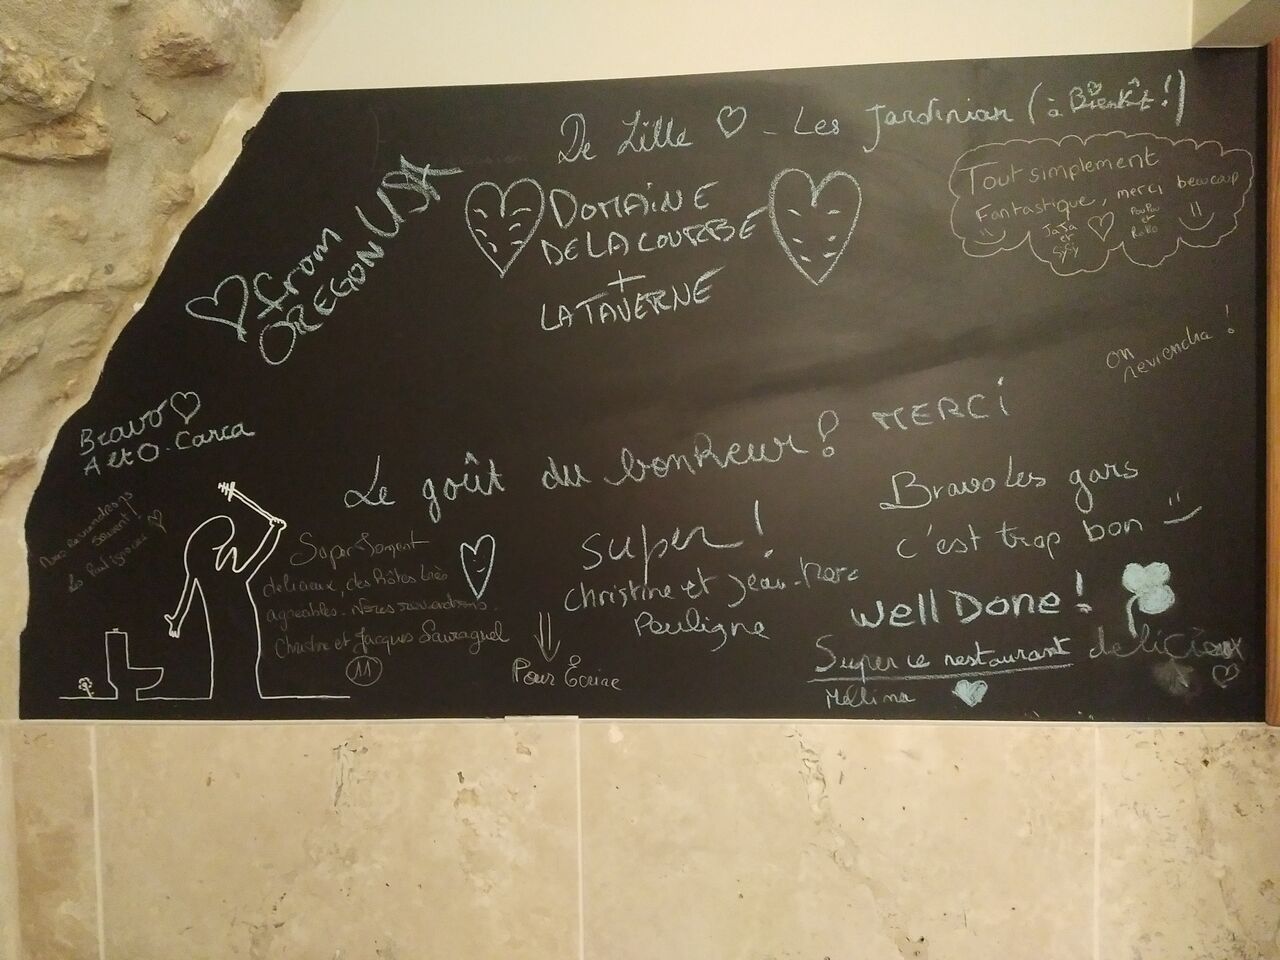 De Lille - Les Jardinian (à Bientôt !)
from
OREGON USA
DOMAINE
DE LA COURBE
+
LA TAVERNE
Tout simplement
Fantastique, merci beaucoup
JaJa
et
SySy
PouPou
et
RoRo
on
reviendra !
Bravo
A et O. Carca
Le goût du bonheur ! MERCI
souvent !
Super Moment
délicieux, des hôtes très
agréables. Nous reviendrons.
Christine et Jacques Sauvagnel
11
Super !
Christine et Jean-Marc
Pouligne
Pour Écrire
Bravo les gars
c'est trop bon
Well Done !
Super ce restaurant délicieux
Mellina